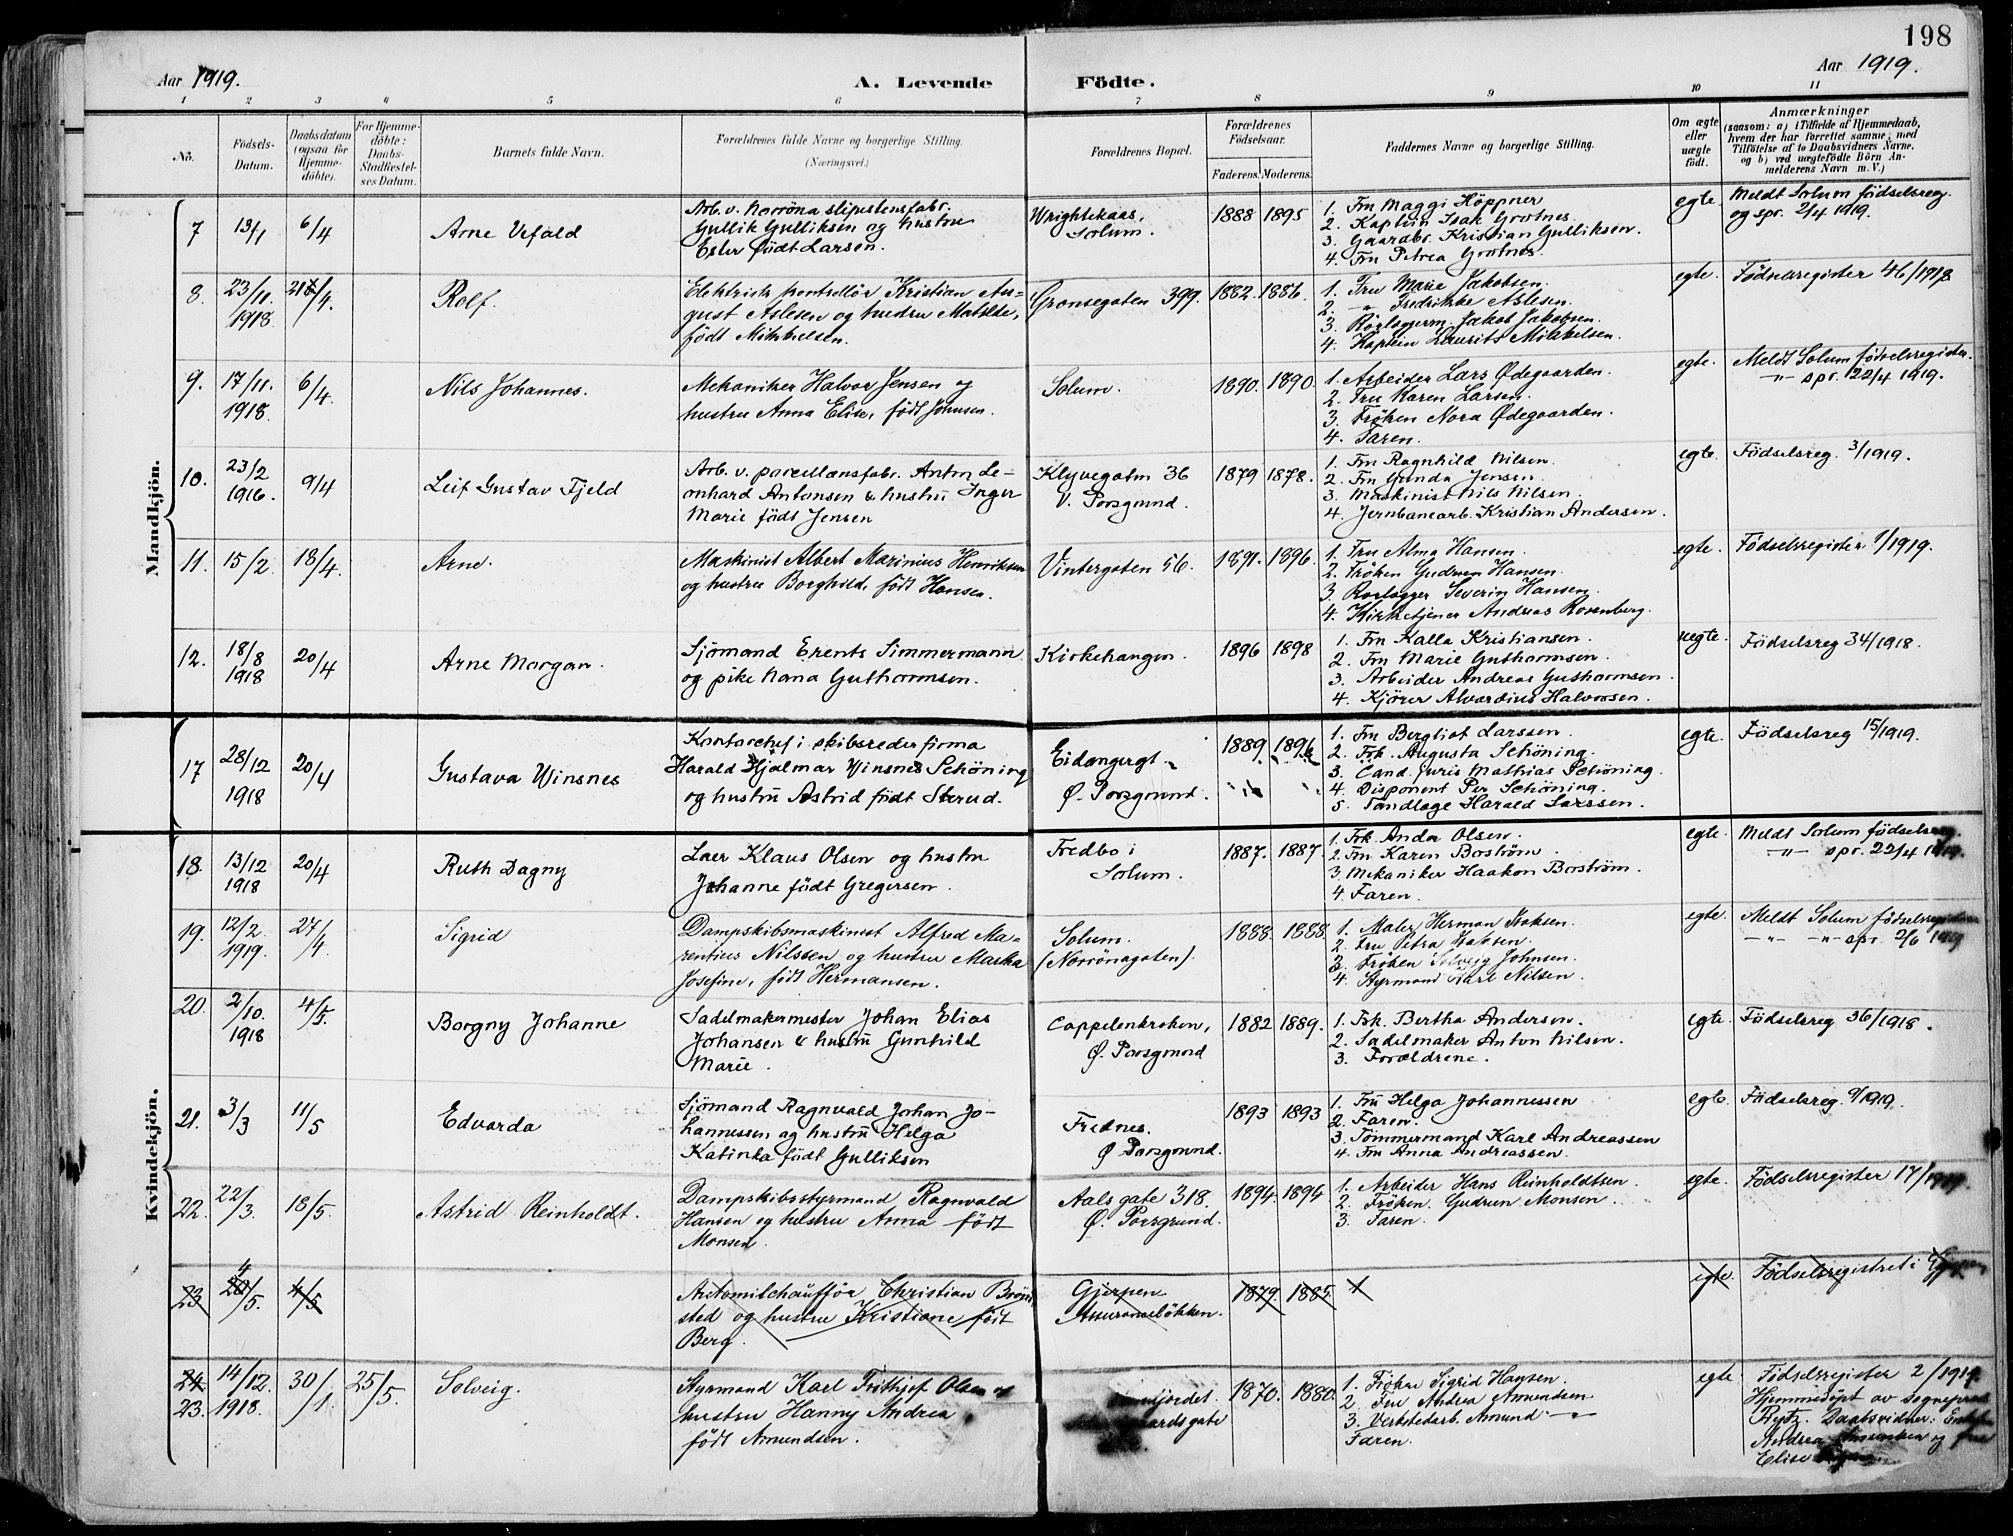 198
Aar 1919. A. Levende Födte. Aar 1919.
1 2 3 4 5 6 7 8 9 10 11
No. Födsels-Datum. Daabsdatum (ogsaa for Hjemme-döbte). For Hjemme-döbte: Daabs-Stadfæstel-ses Datum. Barnets fulde Navn. Forældrenes fulde Navne og borgerlige Stilling. (Næringsvei.) Forældrenes Bopæl. Forældrenes Födselsaar. Faderens. Moderens. Faddernes Navne og borgerlige Stilling. Om ægte eller uægte födt. Anmærkninger (saasom: a) i Tilfælde af Hjemmedaab, hvem der har forrettet samme, med Tilföielse af to Daabsvidners Navne, og b) ved uægtefödte Börn An-melderens Navn m. V.)
Mandkjön.
7 13/1 6/4 Arne Urfald
Arb. v. Norröna slipestensfabr.
Gullik Gulliksen og hustru
Ester födt Larsen.
Wrightekaas, Solum. 1888 1895
1. Fru Maggi Höppner
2. Kaptein Isak Grotnes.
3. Gaardbr. Kristian Gulliksen.
4. Fru Petrea Grotnes.
egte. Meldt Solum födselsreg.
og spr. 2/4 1919.
8. 23/11. 1918 /4. Rolf.
Elektrisk kontrollör Kristian Au-
gust Aslesen og hustru Matilde,
födt Mikkelsen.
Grønsegaten 399. 1882. 1886.
1. Fru Marie Jakobsen.
2. -"- Fredrikke Aslesen.
3. Rörlæggerm. Jakob Jakobsen.
4. Kaptein Laurits Mikkelsen.
egte. Födselsregister 46/1918
9. 17/11. 1918. 6/4. Nils Johannes.
Mekaniker Halvor Jensen og
hustru Anna Elise, födt Johnsen.
Solum. 1890. 1890.
1. Arbeider Lars Ødegaarden.
2. Fru Karen Larsen.
3. Fröken Nora Ødegaarden.
4. Faren.
egte. Meldt Solum födselsregister.
-"- spr. 22/4 1919.
10. 23/2 1916. 9/4 Leif Gustav Fjeld
Arb. v. porcellænsfabr. Anton Le-
onhard Antonsen & hustru Inger
Marie födt Jensen
Klyvegatm 36
V. Porsgrund. 1879 1878.
1. Fru Ragnhild Nilsen.
2. Fru Gunda Jensen.
3. Maskinist Nils Nilsen.
4. Jernbanearb. Kristian Andersen.
egte. Födselsreg. 3/1919.
11. 15/2. 18/4. Arne.
Maskinist Albert Marinius Henriksen
og hustru Borghild, födt Hansen.
Vintergaten 56. 1891. 1896.
1. Fru Alma Hansen.
2. Fröken Gudrun Hansen.
3. Rørlægger Severin Hansen.
4. Kirketjener Andreas Rosenberg.
egte. Födselsregister /1919.
12. 18/8 1918 20/4 Arne Morgan.
Sjömand Erents Simmermann
og pike Nana Guthormsen.
Kirkehaugen. 1896 1898
1. Fru Kalla Kristiansen.
2. Fru Marie Guthormsen.
3. Arbeider Andreas Guthormsen.
4. Kjörer Alvardius Halvorsen.
uegte. Födselsreg 34/1918.
17 28/12 1918 20/4 Gustava Winsnes
Kontorchef i skibsrederfirma
Harald Hjalmar Winsnes Schöning
og hustru Astrid födt Sterud.
Eidangergt.
Ø. Porsgrund. 1889
1. Fru Bergliot Larssen.
2. Frk. Augusta Schöning.
3. Cand. juris Mathias Schöning.
4. Disponent Per Schöning.
5. Tandlæge Harald Larssen.
egte. Födselsreg 15/1919.
Kvindekjön.
18. 13/12 1918 20/4 Ruth Dagny
Loer Klaus Olsen og hustru
Johanne födt Gregersen.
Fredbo i
Solum. 1887. 1887
1. Frk. Anda Olsen.
2. Fru Karen Boström.
3. Mekaniker Haakon Borström.
4. Faren.
egte. Meldt Solum födselsreg.
-"- spr. 22/4 1919.
19. 12/2. 1919. 27/4. Sigrid
Dampskibsmaskinist Alfred Ma-
rentius Nilssen og hustru Martha
Josefine, födt Hermansen.
Solum.
(Norrönagaten). 1888. 1888
1. Maler Herman Isaksen.
2. Fru Petra Isaksen.
3. Fröken Solveig Johnsen.
4. Styrmand Karl Nilsen.
egte. Meldt Solum födselsregisteren
-"- -"- spr. 2/6 1919
20. 2/10. 1918 4/5. Borgny Johanne
Sadelmakermester Johan Elias
Johansen & hustru Gunhild
Marie.
Cappelenkroken,
Ø. Porsgrund 1882 1889.
1. Frk. Bertha Andersen.
2. Sadelmaker Anton Nilsen.
3. Forældrene.
egte. Födselsreg 36/1918.
21. 3/3 11/5 Edvarda
Sjömand Ragnvald Johan Jo-
hannessen og hustru Helga
Katinka födt Gulliksen
Frednes.
Ø Porsgrund. 1893 1893
1. Fru Helga Johannessen
2. Faren.
3. Tömmermand Karl Andreassen
4. Fru Anna Andreassen.
egte. Födselsreg. 9/1919.
22. 22/3. 18/5. Astrid Reinholdt.
Dampskibsstyrmand Ragnvald
Hansen og hustru Anna födt
Monsen.
Aals gate 318.
Ø. Porsgrund. 1894. 1894
1. Arbeider Hans Reinholdtsen.
2. Fröken Gudrun Monsen.
3. Faren.
egte. Födselsregister 17/1919.
23 /5. 4/5
Automilchaufför Christian Brön-
sted og hustru Kristiane födt
Berg.
Gjerpen 1879. 1885.
egte. Födselsregistret i Gjerpen
24 23. 14/12. 1918. 30/1. 25/5. Solveig.
Styrmand Karl Frithjof Olsen og
hustru Hanny Andrea
födt Amundsen.
1870. 1880.
1. Fröken Sigrid Hansen.
2. Fru Andrea Amundsen
3. Verkstedarb. Amund -"-
Faren.
egte Födselsregister 2/1919.
Hjemmedöpt av sogneprest
Daabsvidner:
Andrea Amundsen og fru
Elise